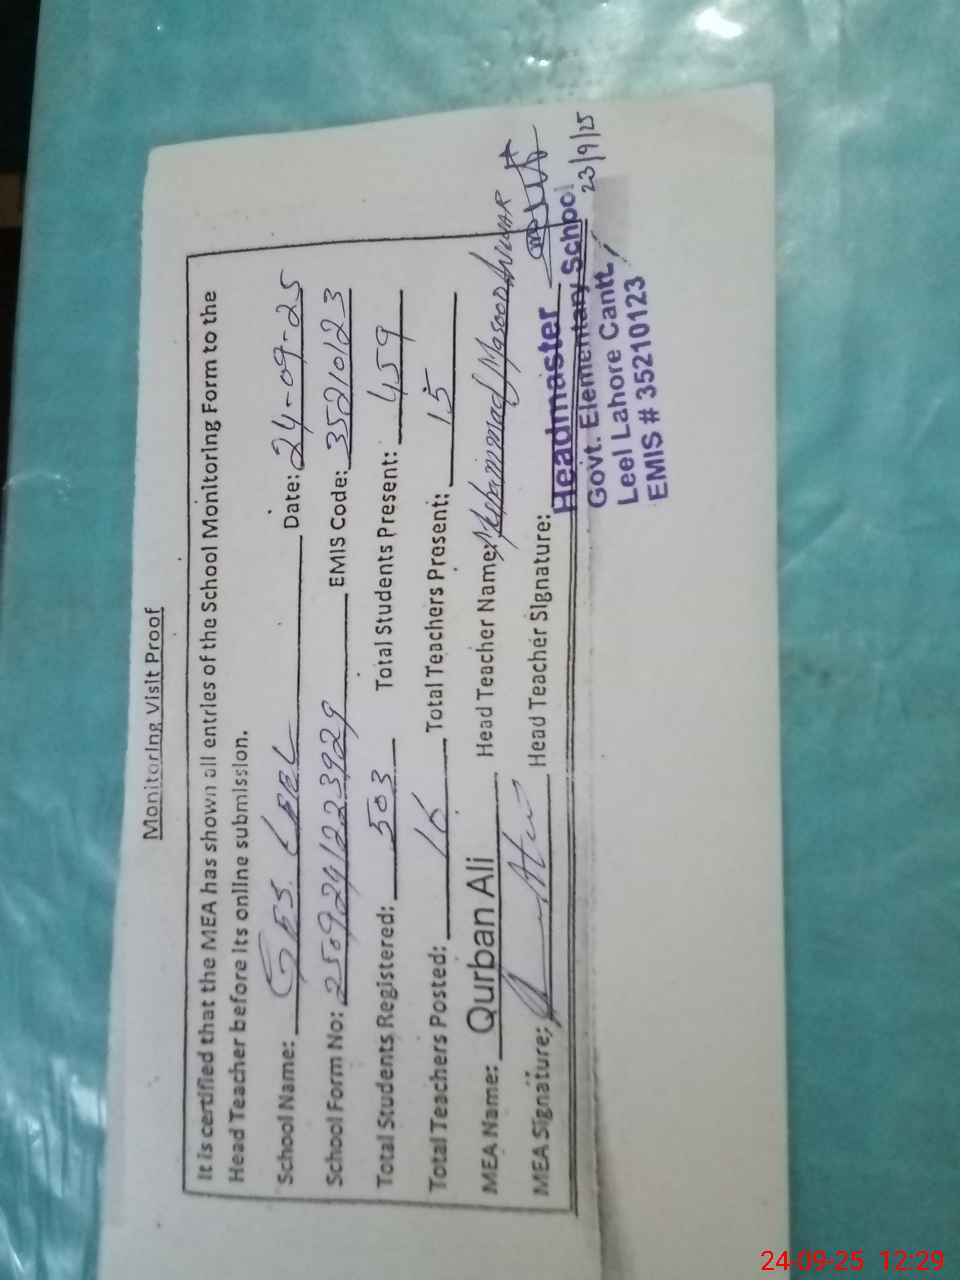 Monitoring Visit Proof
It is certified that the MEA has shown all entries of the School Monitoring Form to the
Head Teacher before its online submission.
School Name: GES. LEEL Date: 24-09-25
School Form No: 2509241223929 EMIS Code: 35210123
Total Students Registered: 503 Total Students Present: 459
Total Teachers Posted: 16 Total Teachers Present: 15
MEA Name: Qurban Ali Head Teacher Name: Muhammad Masood Anwar
MEA Signature: Head Teacher Signature:
Headmaster
Govt. Elementary School 23/9/25
Leel Lahore Cantt
EMIS # 35210123
24-09-25 12:29